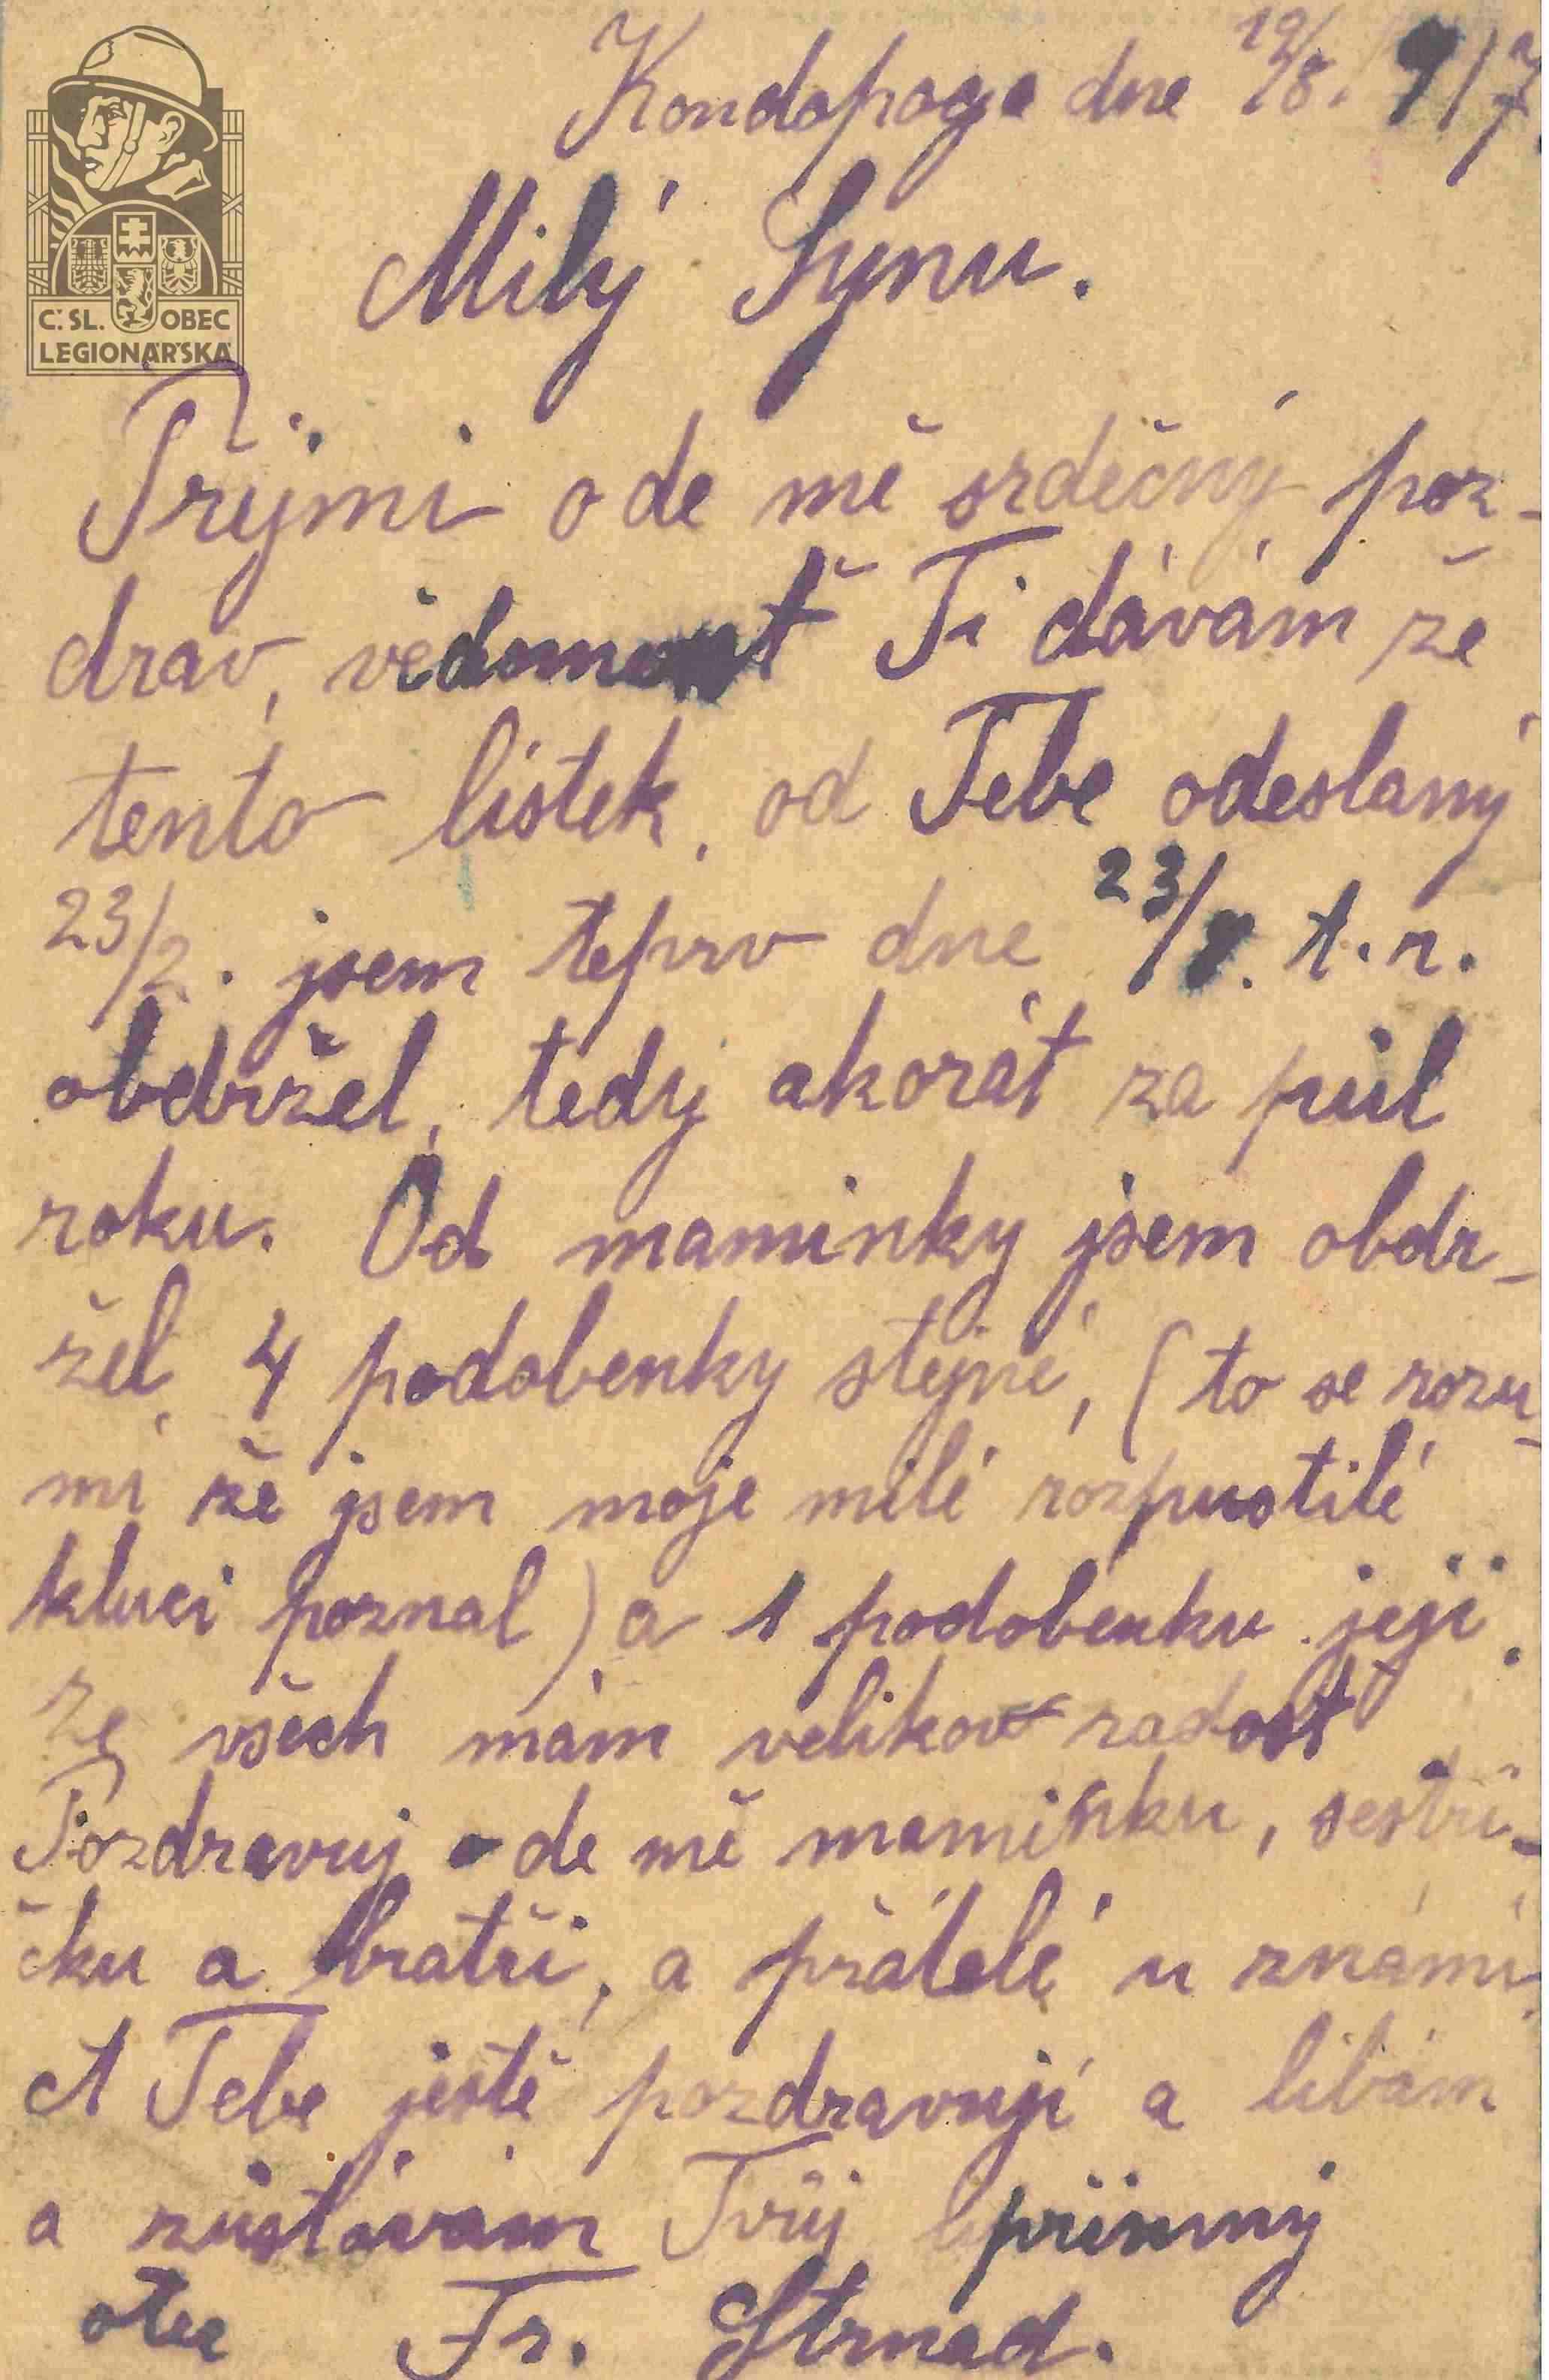 Kondopoga dne 19/8. 917.
Č: SL. OBEC
LEGIONÁŘSKÁ
Milý Synu.
Přijmi o de mě srdečný poz-
drav, vědomosť Ti dávám že
tento lístek, od Tebe odeslaný
23/2. jsem teprv dne 23/8. t. r.
obdržel, tedy akorát za půl
roku. Od maminky jsem obdr-
žel, 4 podobenky stejné, (to se rozu-
mí že jsem moje milé rozpustilé
kluci poznal) a 1 podobenku její.
Ze všech mám velikou radost
Pozdravuj o de mě maminku, sestři-
čku a bratři, a přátelé u známí,
A Tebe ještě pozdravují a líbám
a zůstávám Tvůj upřímný
otec Fr. Strnad.